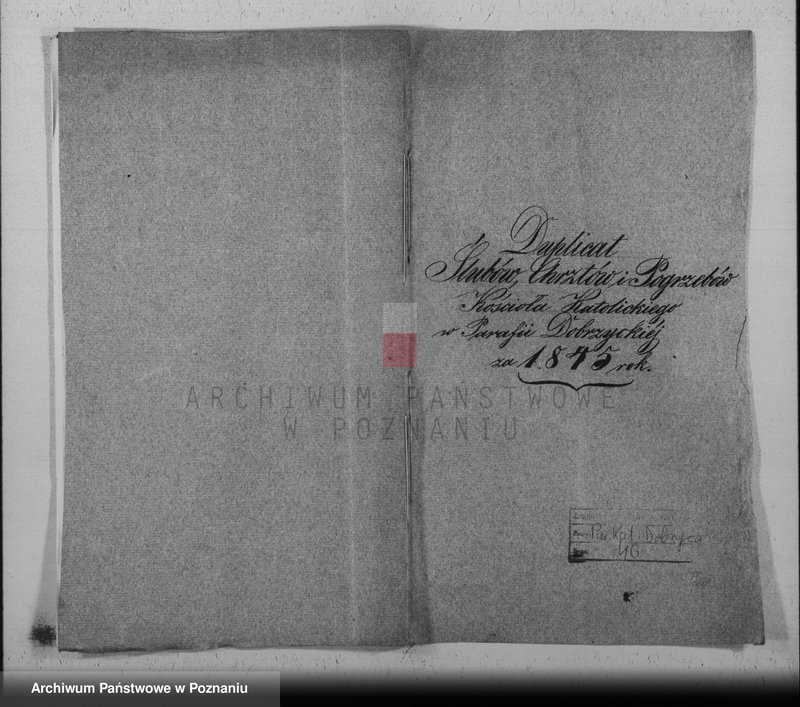 Duplicat
Ślubów, Chrztów, i Pogrzebów
Kościoła Katolickiego
w Parafii Dobrzyckiéj
za 1845 rok.
ARCHIWUM PAŃSTWOWE
W POZNANIU
46
Archiwum Państwowe w Poznaniu